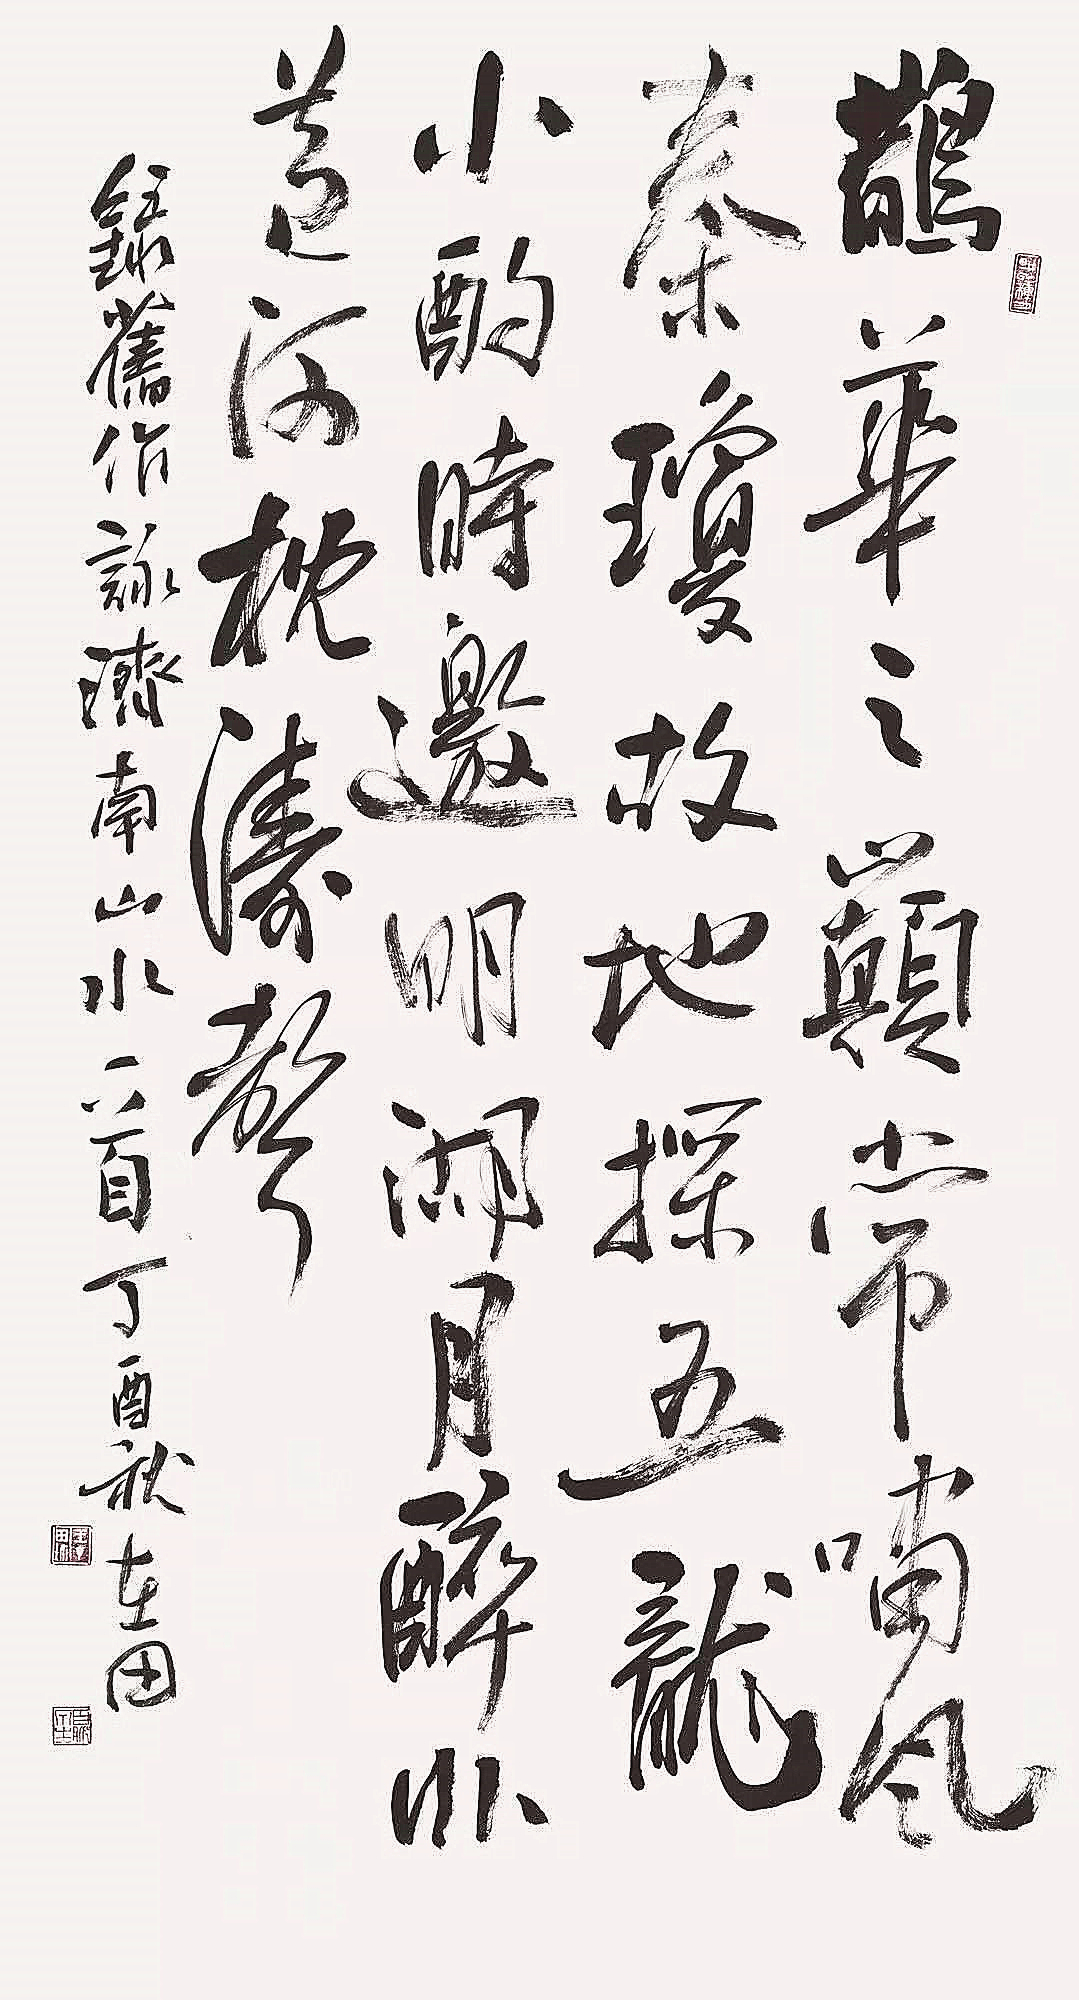 鵲華之巔常嘯風
秦瓊故地探五龍
小酌時邀明湖月醉卧
黄河枕濤聲
録舊作詠濟南山水一首丁酉秋在田